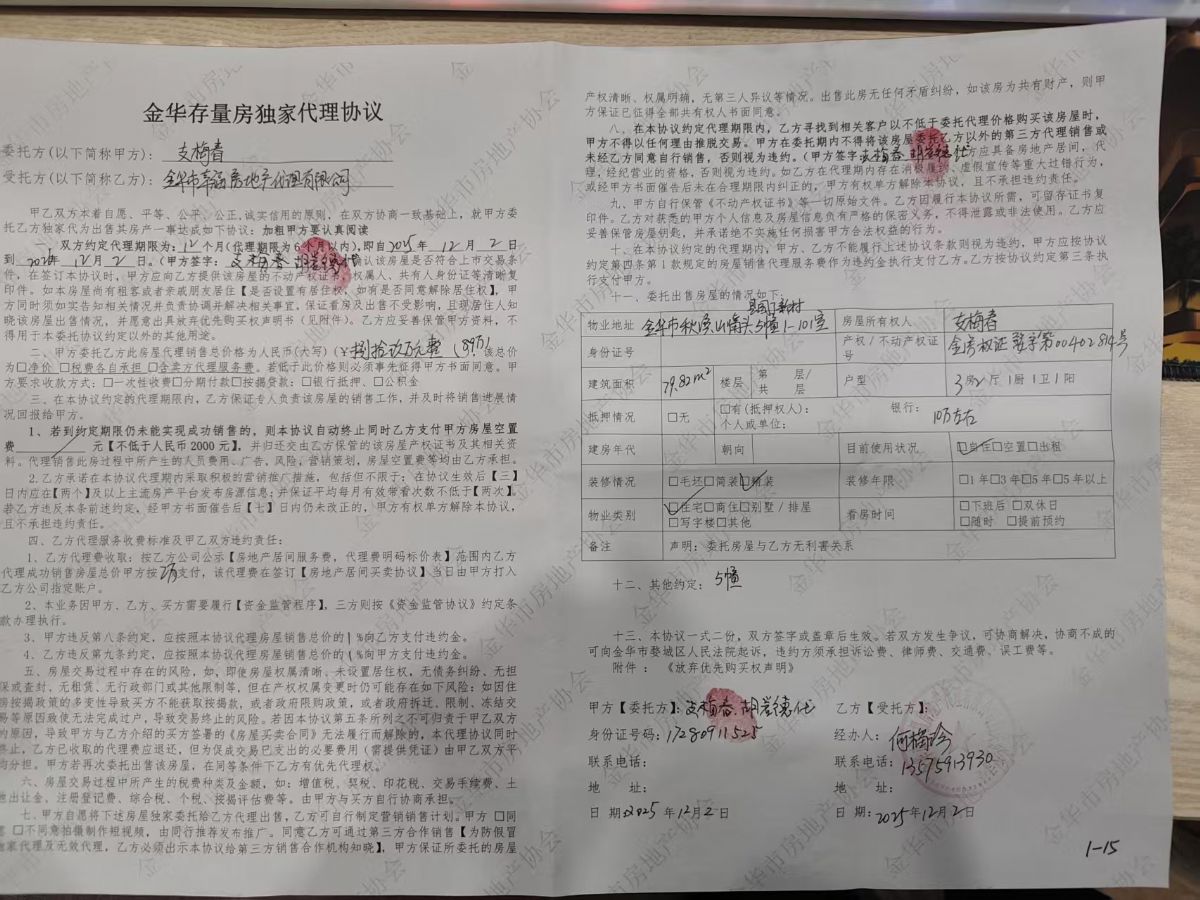 金华存量房独家代理协议
委托方(以下简称甲方)： 支梅春
受托方(以下简称乙方)： 金华市 房地产代理有限公司
甲乙双方本着自愿、平等、公平、公正,诚实信用的原则，在双方协商一致基础上，就甲方委
托乙方独家代为出售其房产一事达成如下协议：加粗甲方要认真阅读
双方约定代理期限为：12 个月(代理期限为6个月以内)，即自2025年 12 月 2 日
到 2026年 12 月 2 日。(甲方签字： 支梅春 认该房屋是否符合上市交易条
件，在签订本协议时，甲方应向乙方提供该房屋的不动产权证书、权属人、共有人身份证等清晰复
印件。如本房屋尚有租客或者亲戚朋友居住【是否设置有居住权，如有是否同意解除居住权】，甲
方同时须如实告知相关情况并负责协调并解决相关事宜。保证看房及出售不受影响，且现居住人知
晓该房屋出售情况，并愿意出具放弃优先购买权声明书（见附件）。乙方应妥善保管甲方资料，不
得用于本委托协议约定以外的其他用途。
二、甲方委托乙方此房屋代理销售总价格为人民币(大写)（¥ 捌拾玖万元整 （89万）该总价
为□净价 □税费各自承担 □含卖方代理服务费。若低于此价格则必须事先征得甲方书面同意。甲
方要求收款方式：□一次性收费□分期付款□按揭贷款：□银行抵押、□公积金
三、在本协议约定的代理期限内，乙方保证专人负责该房屋的销售工作，并及时将销售进展情
况回报给甲方。
1、若到约定期限仍未能实现成功销售的，则本协议自动终止同时乙方支付甲方房屋空置
费 元【不低于人民币 2000 元】，并归还交由乙方保管的该房屋产权证书及其相关资
料。代理销售此房过程中所产生的人员费用、广告，风险，营销策划，房屋空置费等均由乙方承担。
2.乙方承诺在本协议代理期内采取积极的营销推广措施，包括但不限于：在协议生效后【三】
日内应在【两个】及以上主流房产平台发布房源信息；并保证平均每月有效带看次数不低于【两次】。
若乙方违反本条前述约定，经甲方书面催告后【七】日内仍未改正的，甲方有权单方解除本协议，
且不承担违约责任。
四、乙方代理服务收费标准及甲乙双方违约责任：
1、乙方代理费收取：按乙方公司公示【房地产居间服务费，代理费明码标价表】范围内乙方
代理成功销售房屋总价甲方按2万支付，该代理费在签订【房地产居间买卖协议】当日由甲方打入
乙方公司指定账户。
2、本业务因甲方、乙方、买方需要履行【资金监管程序】，三方则按《资金监管协议》约定条
款办理执行。
3、甲方违反第八条约定，应按照本协议代理房屋销售总价的1%向乙方支付违约金。
4、乙方违反第九条约定，应按照本协议代理房屋销售总价的1%向甲方支付违约金。
五、房屋交易过程中存在的风险，如，即使房屋权属清晰、未设置居住权，无债务纠纷、无担
保或查封、无租赁、无行政部门或其他限制等，但在产权权属变更时仍可能存在如下风险：如因住
房按揭政策的多变性导致买方不能获取按揭款，或者政府限购政策，或者政府拆迁、限制、冻结交
易等原因致使无法完成过户，导致交易终止的风险。若因本协议第五条所列之不可归责于甲乙双方
的原因，导致甲方与乙方介绍的买方签署的《房屋买卖合同》无法履行而解除的，本代理协议同时
终止，乙方已收取的代理费应退还，但为促成交易已支出的必要费用（需提供凭证）由甲乙双方平
均分担。甲方若再次委托出售该房屋，在同等条件下乙方有优先代理权。
六、房屋交易过程中所产生的税费种类及金额，如：增值税、契税、印花税、交易手续费、土
地出让金、注册登记费、综合税、个税、按揭评估费等，由甲方与买方自行协商承担。
七、甲方自愿将下述房屋独家委托给乙方代理出售，乙方可自行制定营销销售计划。甲方 □同
意 □不同意拍摄制作短视频，由同行推荐发布推广。同意乙方可通过第三方合作销售【为防假冒
独家代理及无效代理，乙方必须出示本协议给第三方销售合作机构知晓】，甲方保证所委托的房屋
产权清晰、权属明确，无第三人异议等情况。出售此房无任何矛盾纠纷，如该房为共有财产，则甲
方保证已征得全部共有权人书面同意。
八、在本协议约定代理期限内，乙方寻找到相关客户以不低于委托代理价格购买该房屋时，
甲方不得以任何理由推脱交易。甲方在委托期内不得将该房屋委托乙方以外的第三方代理销售或
未经乙方同意自行销售，否则视为违约。(甲方签字 支梅春 方应具备房地产居间，代
理，经纪营业的资格，否则视为违约。如乙方在代理期内存在消极履约、虚假宣传等重大过错行为，
或经甲方书面催告后未在合理期限内纠正的，甲方有权单方解除本协议，且不承担违约责任。
九、甲方自行保管《不动产权证书》等一切原始文件。乙方因履行本协议所需，可留存证书复
印件。乙方对获悉的甲方个人信息及房屋信息负有严格的保密义务，不得泄露或非法使用。乙方应
妥善保管房屋钥匙，并承诺绝不实施任何损害甲方合法权益的行为。
十、在本协议约定的代理期内，甲方、乙方不能履行上述协议条款则视为违约，甲方应按协议
约定第四条第 1 款规定的房屋销售代理服务费作为违约金执行支付乙方。乙方按协议约定第三条执
行支付甲方。
十一、委托出售房屋的情况如下：
物业地址 金华市秋滨山嘴头5幢1-101室 房屋所有权人 支梅春
身份证号 产权/不动产权证号 金房权证婺字第00402814号
建筑面积 79.82m² 楼层 第 层/共 层 户型 3房2厅1厨1卫1阳
抵押情况 □无 □有(抵押权人)： 银行： 10万左右
个人或单位：
建房年代 朝向 目前使用状况 □自住□空置□出租
装修情况 □毛坯□简装□精装 装修年限 □1年□3年□5年□5年以上
物业类别 □住宅□商住□别墅/排屋 □写字楼□其他 看房时间 □下班后 □双休日 □随时 □提前预约
备注 声明：委托房屋与乙方无利害关系
十二、其他约定： 5幢
十三、本协议一式二份，双方签字或盖章后生效。若双方发生争议，可协商解决，协商不成的
可向金华市婺城区人民法院起诉，违约方须承担诉讼费、律师费、交通费、误工费等。
附件：《放弃优先购买权声明》
甲方【委托方】： 支梅春 乙方【受托方】：
身份证号码：17280911525 经办人： 何梅玲
联系电话： 联系电话：13575913930
地 址： 地 址：
日 期：2025年12月2日 日 期：2025年12月2日
1-15